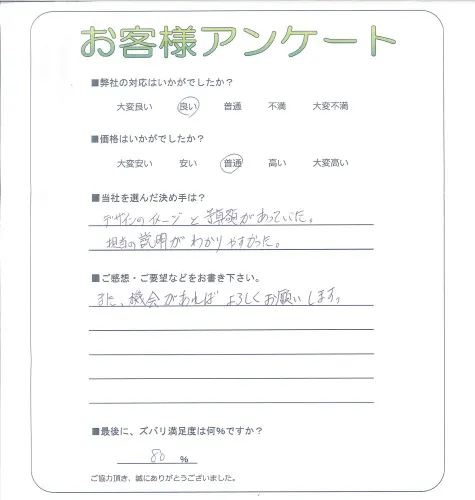 お客様アンケート
■弊社の対応はいかがでしたか?
大変良い 良い 普通 不満 大変不満
■価格はいかがでしたか?
大変安い 安い 普通 高い 大変高い
■当社を選んだ決め手は?
デザインのイメージと予算額があっていた。
担当の説明がわかりやすかった。
■ご感想・ご要望などをお書き下さい。
また、機会があればよろしくお願いします。
■最後に、ズバリ満足度は何%ですか?
80 %
ご協力頂き、誠にありがとうございました。